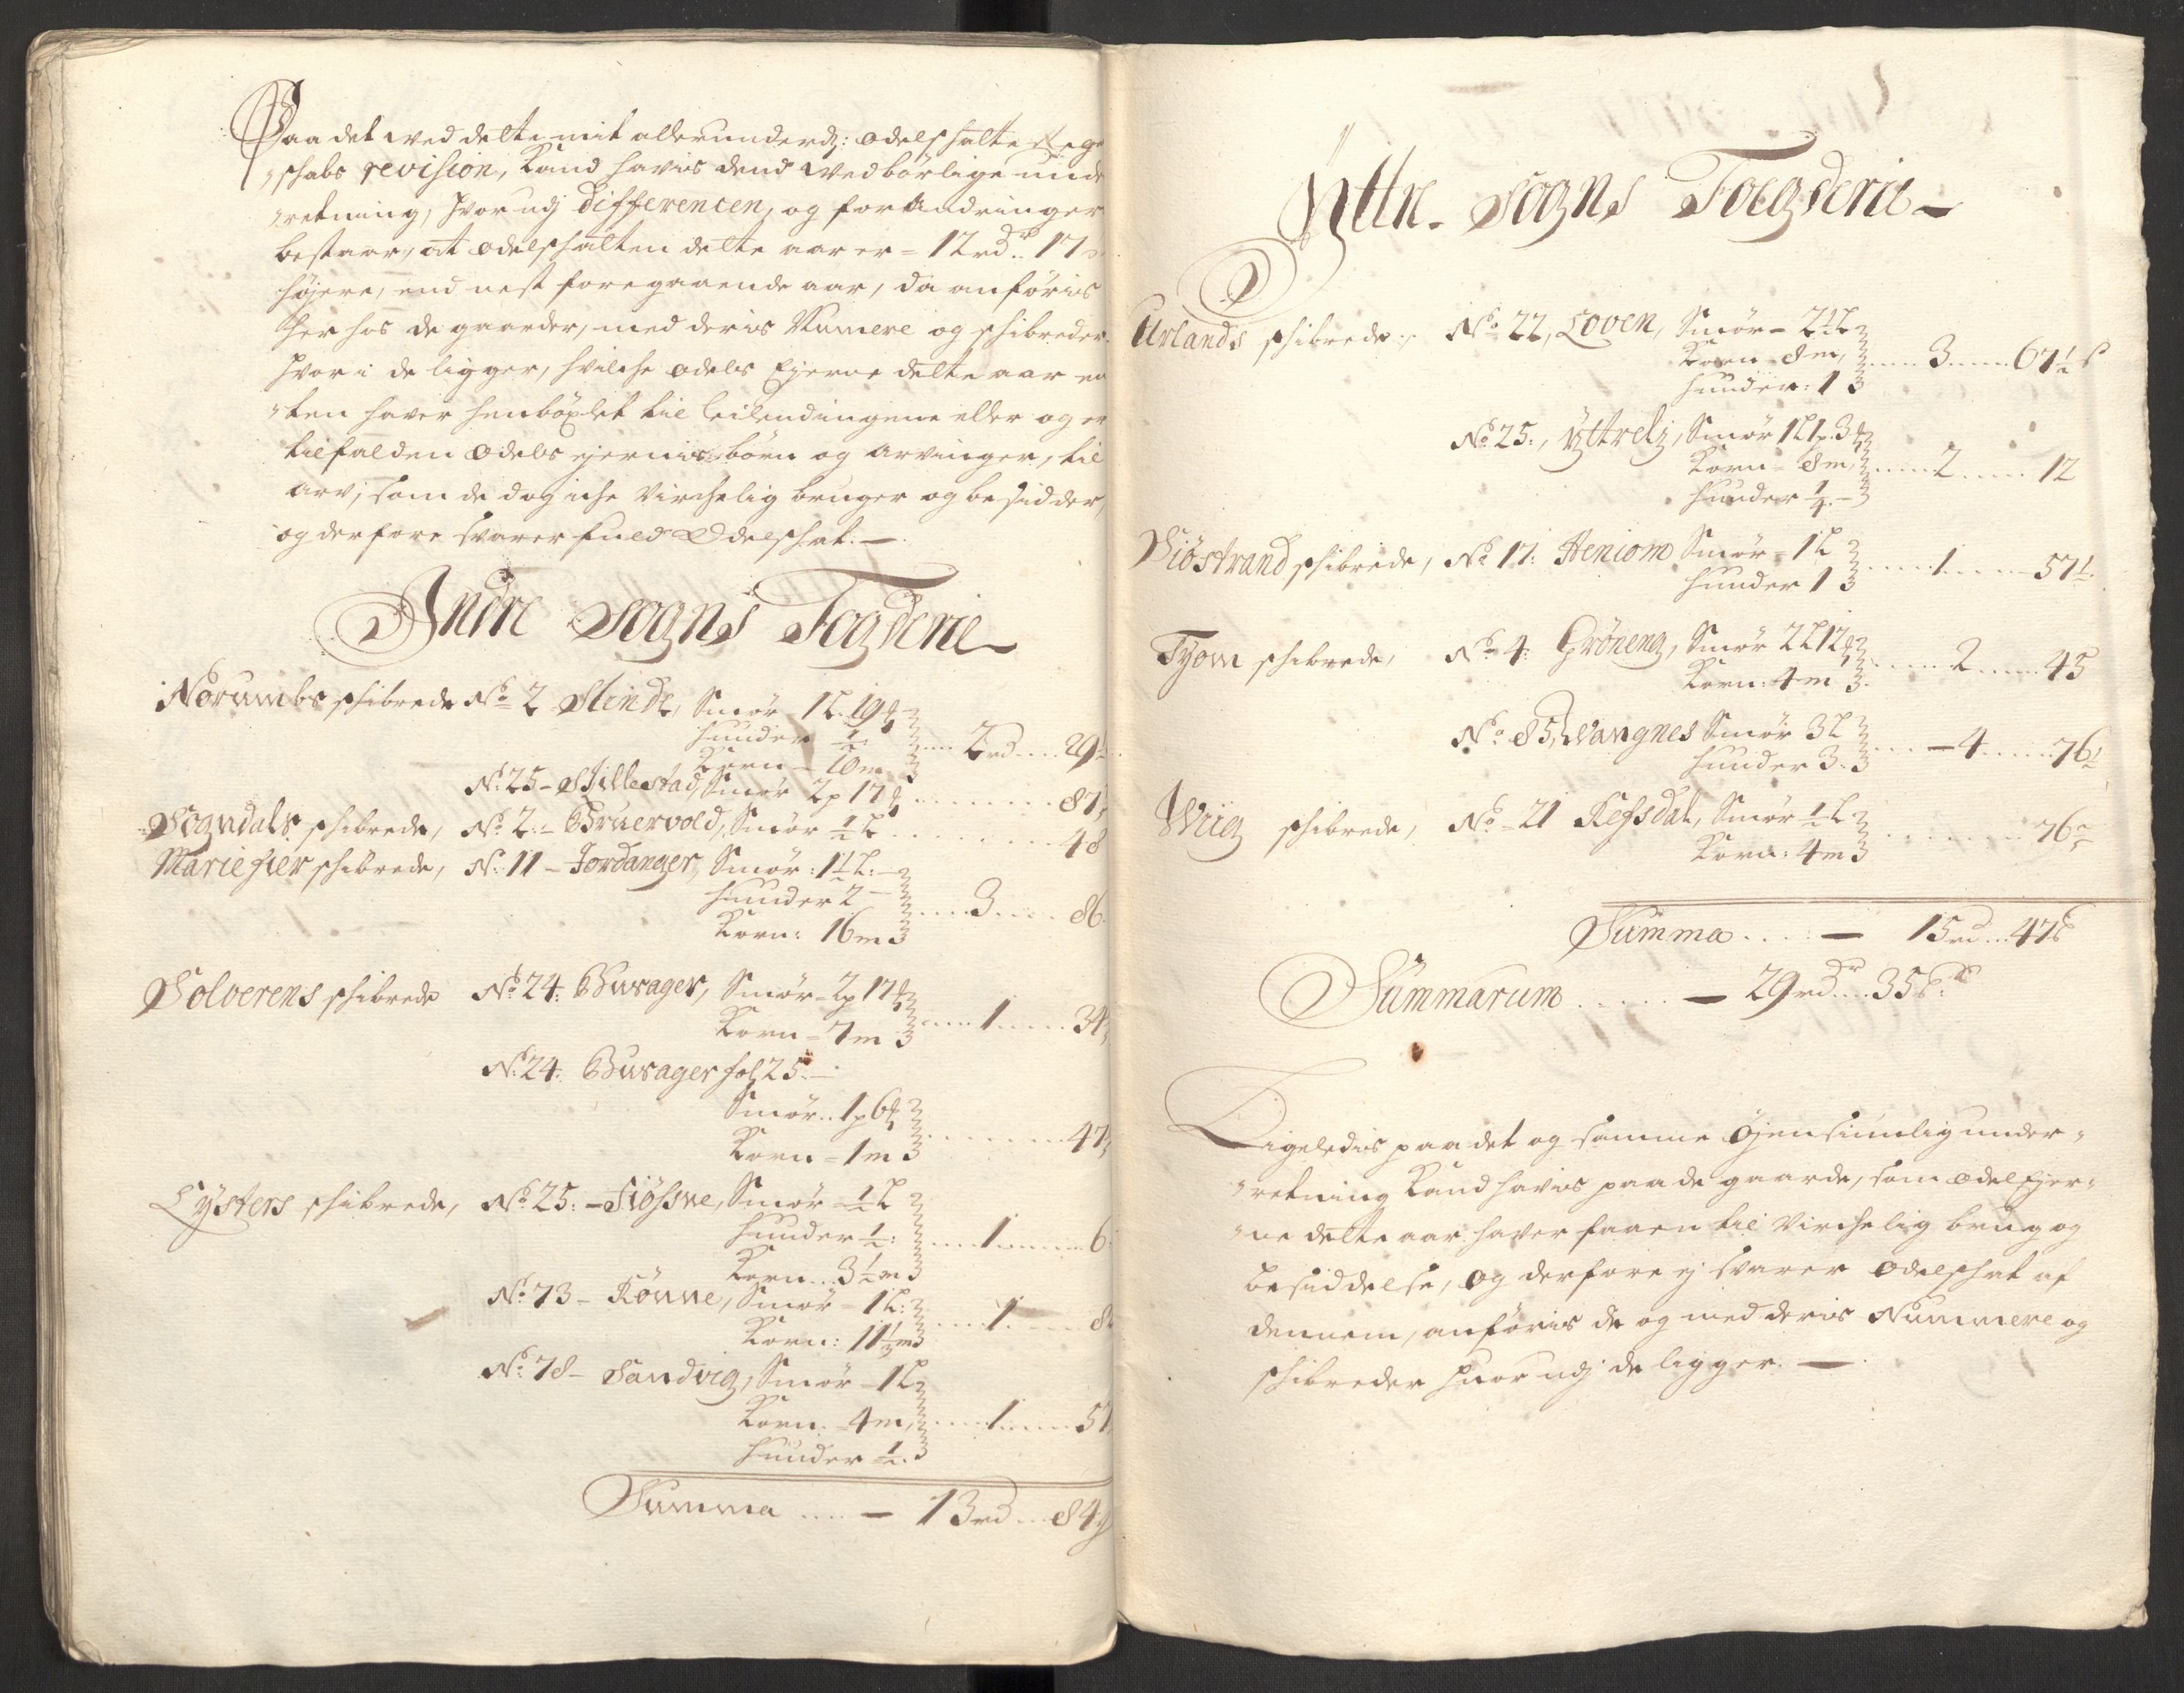 Paa det wed dette mit allerunderd: odelschatte Regn
schabs revision, Kand havis dend wedbörlige unde
retning, hvorudj differencen, og forAndringer
bestaar, at odelschatten dette aar er = 12 rdr. 17
höjere, end nest foregaaende aar, da anföris
her hos de gaarder, med deris Numere og schibreder
hvor i de ligger, hvilche odels Ejerne dette aar en
ten haver henböxlet til leilendingene eller og er
tilfalden Odels ejernis börn og Arvinger, til
arv, som de dog iche Virchelig bruger og besidder,
og derfore svarer fuld Odelschat. —
Indre Sogns Fogderie
Norumbs schibrede No 2 Slinde, Smör 1 L. 19
hunder ½
Korn – 10 m ... 2 rd ... 29
No 25 – Stillestad, Smör 2 p 17 ... 87
Sogndals schibrede, No 2 – Bruervold, Smör ½ L ... 48
Mariefier schibrede, N. 11 – Jordanger, Smör: 1½ L:
hunder 2
Korn: 16 m ... 3 ... 86
Solverens schibrede No 24: Burager, Smör – 2 p 17
Korn = 7 m ... 1 ... 34
No 24: Burager fol 25. –
Smör .. 1 p 6
Korn = 1 m ... 47
Lysters schibrede, No 25: – Fiösne, Smör = ½ L
hunder ½:
Korn ... 3½ m ... 1 ... 6
No 73 – Rönne, Smör = 1 L:
Korn: 11½ m ... 1 ... 8
No: 78 – Sandvig, Smör – 1 L
Korn. = 4 m,
hunder ½. ... 1 ... 57
Summa .... – 13 rd ... 84
Yttre Sogns Foegderie –
Urlands schibrede; No 22, Loven, Smör – 2½ L
Korn – 8 m,
hunder: 1 ... 3 ... 67½ s
No 25:, Yttrelj, Smör 1 L 1 p. 3
Korn = 8 m,
hunder ¼ – ... 2 ... 12
Siöstrand schibrede, No 17: Heniom Smör = 1 L
hunder 1 ... 1 ... 57½
Tyom schibrede, No 4: Gröneng, Smör 2 L 12
Korn: 4 m ... 2 ... 45
No 85, Wangnes Smör 3 L
hunder 3. ... – 4 ... 76½
Wiig schibrede, No – 21 Refsdal, Smör ½ L
Korn: 4 m ... 76
Summa .... – 15 rd ... 47 s
Summarum ..... – 29 rdr ... 35 s
Ligeledis paa det og samme öjensiunlig under,
retning Kand havis paa de gaarde, som odel Ejer,
ne dette aar haver faaen til Virchelig brug og
besiddelse, og derfore ej svarer Odelschat af
dennem, anföris de og med deris Nummere og
schibreder huor udj de ligger. —